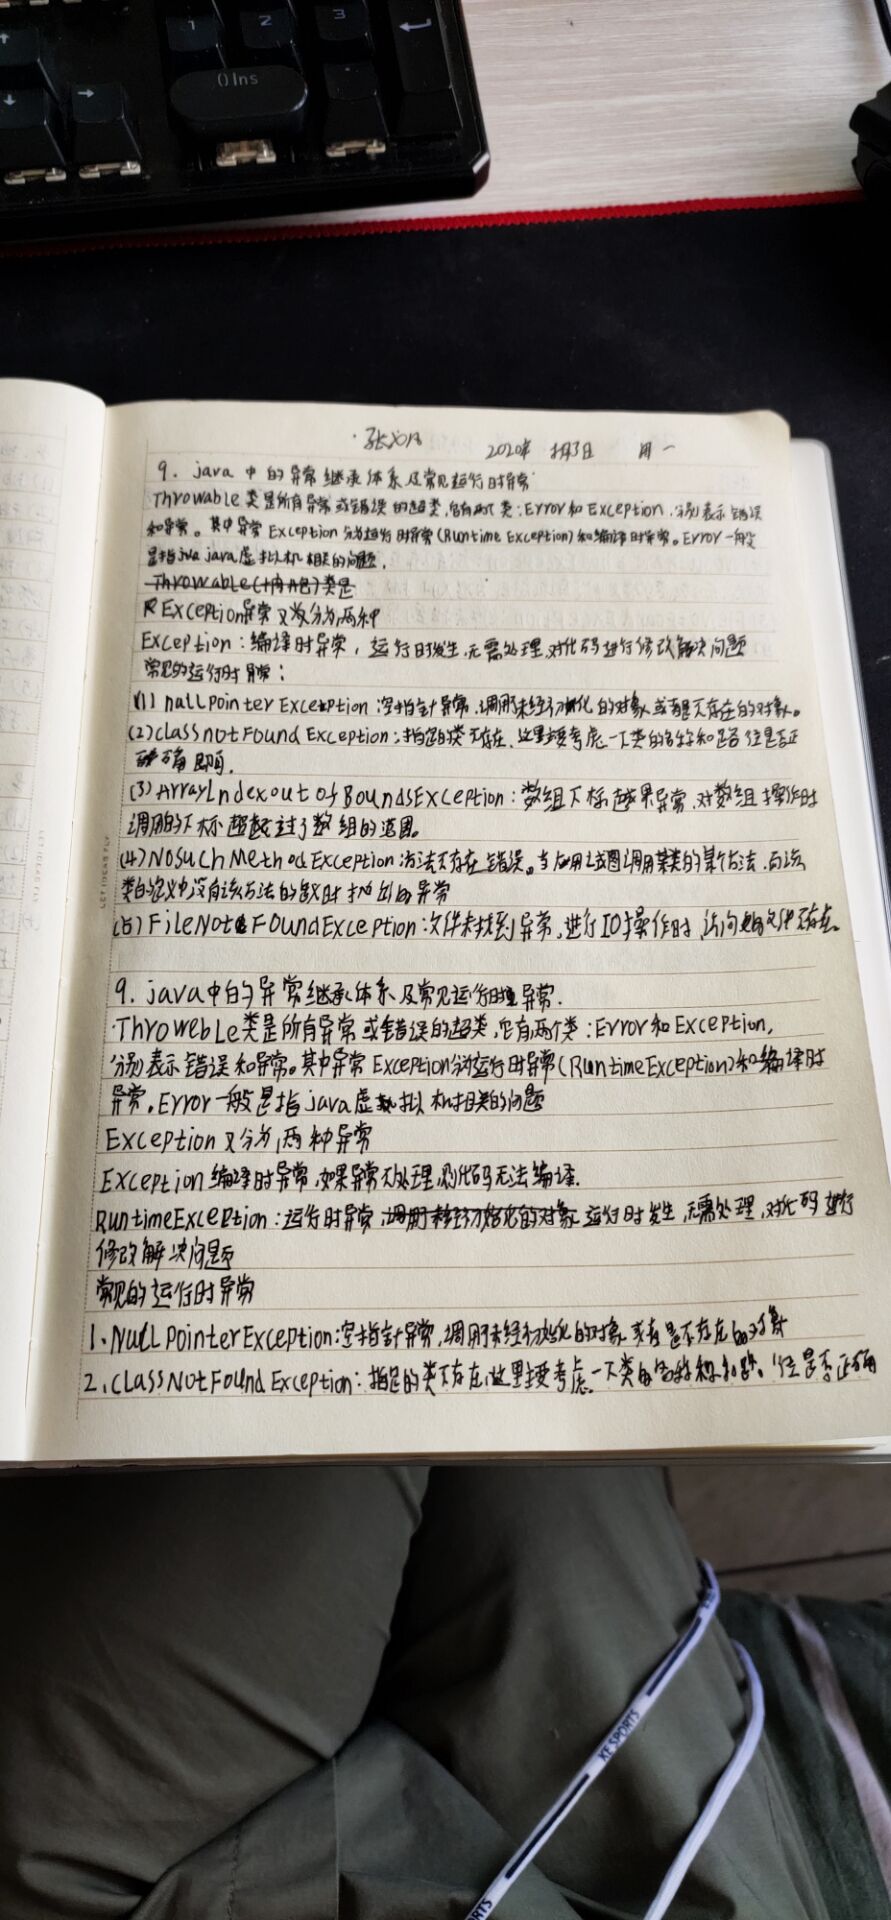 1
2
3
0 Ins
2020年 3日 周一
9. java 中的异常继承体系及常见运行时异常
Throwable类是所有异常或错误的超类,它有两个类:Error和Exception,分别表示错误
和异常。其中异常Exception分为运行时异常(Runtime Exception)和编译时异常。Error一般
是指jva java虚拟机相关的问题。
Throwable()类是
Exception异常又分为两种
Exception:编译时异常,运行时发生,无需处理,对代码进行修改解决问题
常见的运行时异常:
(1) nallpointerException:空指针异常,调用未经初始化的对象或者是不存在的对象。
(2)classnotFoundException:指定的类不存在,这里主要考虑一下类的名称和路径是否正
确即可.
(3)ArrayIndexoutofBoundsException:数组下标越界异常,对数组操作时
调用的下标超过了数组的范围。
(4)NosuchMethodException:方法不存在错误。当应用试图调用某类的某个方法,而该
类的定义中没有该方法的定义时抛出的异常
(5)FileNotFoundException:文件未找到异常,进行IO操作时,访问的文件不存在。
LET IDEAS FLY
9. java中的异常继承体系及常见运行时异常.
Throweble类是所有异常或错误的超类,它有两个类:Error和Exception,
分别表示错误和异常。其中异常Exception分为运行时异常(RuntimeException)和编译时
异常,Error一般是指java虚拟机相关的问题
Exception又分为两种异常
Exception编译时异常,如果异常不处理,则代码无法编译.
RuntimeException:运行时异常,调用未经初始化的对象 运行时发生,无需处理,对代码进行
修改解决问题
常见的运行时异常
1.NullPointerException:空指针异常,调用未经初始化的对象或者是不存在的对象
2.ClassNotFoundException:指定的类不存在,这里主要考虑一下类的名称和路径是否正确
XESPORTS